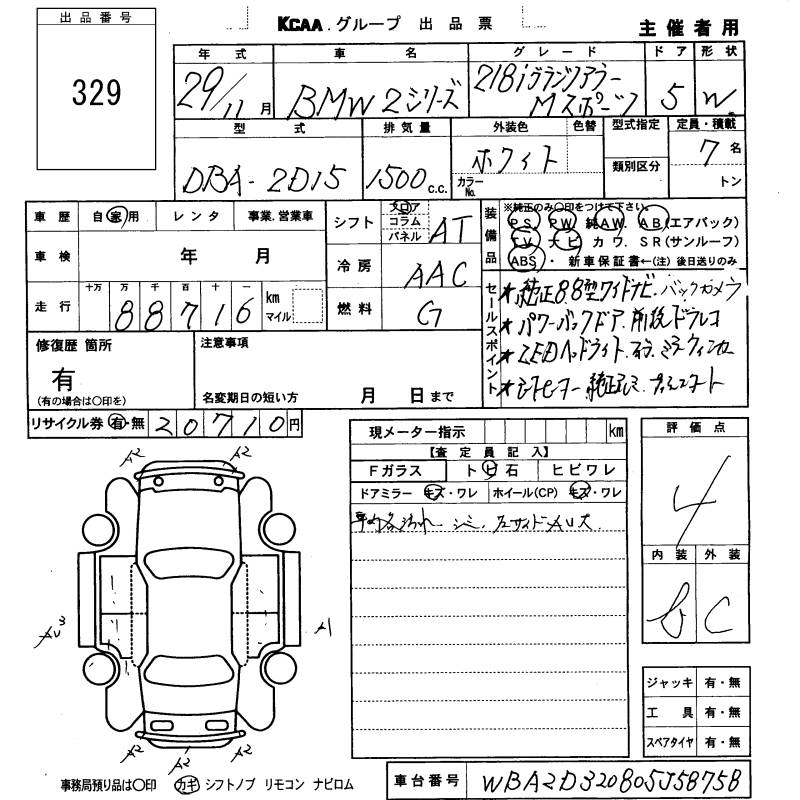 出品番号
329
KCAA.グループ 出品票
主催者用
年式 車名 グレード ドア 形状
29/11月 BMW 2シリーズ 218iグランツアラー Mスポーツ 5 W
型式 排気量 外装色 色替 型式指定 定員・積載
DBA-2D15 1500c.c. ホワイト カラーNo. 類別区分 7名 トン
車歴 自家用 レンタ 事業.営業車
シフト フロア コラム パネル AT
車検 年 月
冷房 AAC
走行 十万 万 千 百 十 一
88716 km マイル
燃料 G
装備品 ※純正のみ〇印をつけて下さい。
PS. PW 純AW. AB(エアバック)
TV. ナビ カワ. SR(サンルーフ)
ABS・ 新車保証書←(注)後日送りのみ
セールスポイント
★純正8.8型ワイドナビ.バックカメラ
★パワーバックドア.前後ドラレコ
★LEDヘッドライト.
★シートヒーター 純正アルミ.
修復歴 箇所
有
(有の場合は〇印を)
注意事項
名変期日の短い方 月 日まで
リサイクル券 有・無 20710円
現メーター指示 km
【査定員記入】
Fガラス トビ石 ヒビワレ
ドアミラー キズ・ワレ ホイール(CP) キズ・ワレ
シミ.
評価点
4
内装 外装
b C
A2 A2
AU3 A1
A2 A2 A2
ジャッキ 有・無
工具 有・無
スペアタイヤ 有・無
事務局預り品は〇印 カギ シフトノブ リモコン ナビロム
車台番号 WBA2D320805J58758